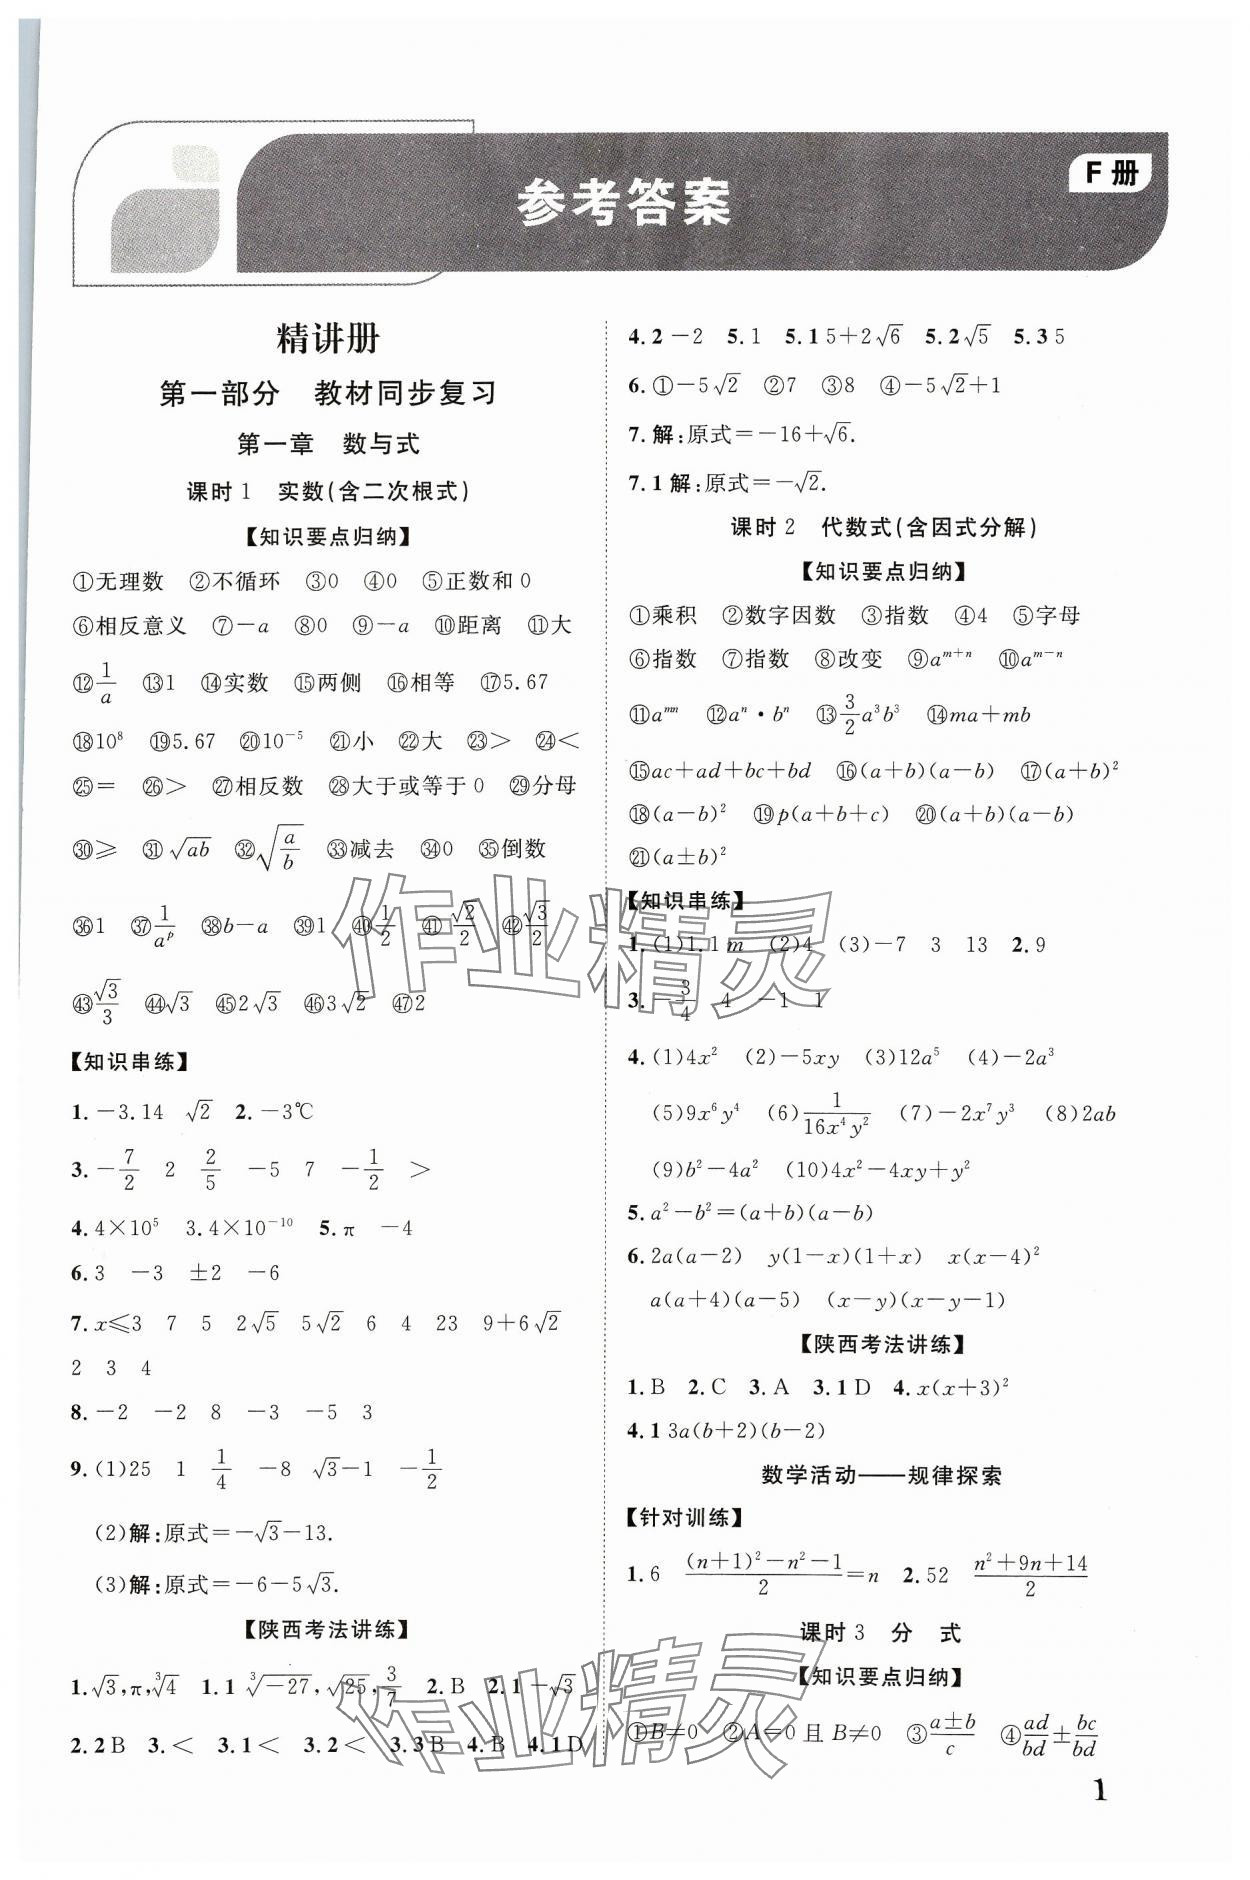 参考答案
F册
精讲册
第一部分 教材同步复习
第一章 数与式
课时1 实数(含二次根式)
【知识要点归纳】
①无理数 ②不循环 ③0 ④0 ⑤正数和0
⑥相反意义 ⑦-a ⑧0 ⑨-a ⑩距离 ⑪大
⑫1/a ⑬1 ⑭实数 ⑮两侧 ⑯相等 ⑰5.67
⑱10⁸ ⑲5.67 ⑳10⁻⁵ ㉑小 ㉒大 ㉓> ㉔<
㉕= ㉖> ㉗相反数 ㉘大于或等于0 ㉙分母
㉚≥ ㉛√(ab) ㉜√(a/b) ㉝减去 ㉞0 ㉟倒数
㊱1 ㊲1/aᵖ ㊳b-a ㊴1 ㊵1/2 ㊶√2/2 ㊷√3/2
㊸√3/3 ㊹√3 ㊺2√3 ㊻3√2 ㊼2
【知识串练】
1.-3.14 √2 2.-3℃
3.-7/2 2 2/5 -5 7 -1/2 >
4.4×10⁵ 3.4×10⁻¹⁰ 5.π -4
6.3 -3 ±2 -6
7.x≤3 7 5 2√5 5√2 6 4 23 9+6√2
2 3 4
8.-2 -2 8 -3 -5 3
9.(1)25 1 1/4 -8 √3-1 -1/2
(2)解:原式=-√3-13.
(3)解:原式=-6-5√3.
【陕西考法讲练】
1.√3,π,∛4 1.1 ∛-27,√25,3/7 2.B 2.1-√3
2.2B 3.< 3.1< 3.2< 3.3B 4.B 4.1D
4.2-2 5.1 5.15+2√6 5.2√5 5.35
6.①-5√2 ②7 ③8 ④-5√2+1
7.解:原式=-16+√6.
7.1解:原式=-√2.
课时2 代数式(含因式分解)
【知识要点归纳】
①乘积 ②数字因数 ③指数 ④4 ⑤字母
⑥指数 ⑦指数 ⑧改变 ⑨aᵐ⁺ⁿ ⑩aᵐ⁻ⁿ
⑪aᵐⁿ ⑫aⁿ·bⁿ ⑬3/2a³b³ ⑭ma+mb
⑮ac+ad+bc+bd ⑯(a+b)(a-b) ⑰(a+b)²
⑱(a-b)² ⑲p(a+b+c) ⑳(a+b)(a-b)
㉑(a±b)²
【知识串练】
1.(1)1.1m (2)4 (3)-7 3 13 2.9
3.-3/4 4 -1 1
4.(1)4x² (2)-5xy (3)12a⁵ (4)-2a³
(5)9x⁶y⁴ (6)1/16x⁴y² (7)-2x⁷y³ (8)2ab
(9)b²-4a² (10)4x²-4xy+y²
5.a²-b²=(a+b)(a-b)
6.2a(a-2) y(1-x)(1+x) x(x-4)²
a(a+4)(a-5) (x-y)(x-y-1)
【陕西考法讲练】
1.B 2.C 3.A 3.1D 4.x(x+3)²
4.13a(b+2)(b-2)
数学活动——规律探索
【针对训练】
1.6 ((n+1)²-n²-1)/2=n 2.52 (n²+9n+14)/2
课时3 分 式
【知识要点归纳】
①B≠0 ②A=0且B≠0 ③(a±b)/c ④ad/bd±bc/bd
1
作业精灵
作业精灵